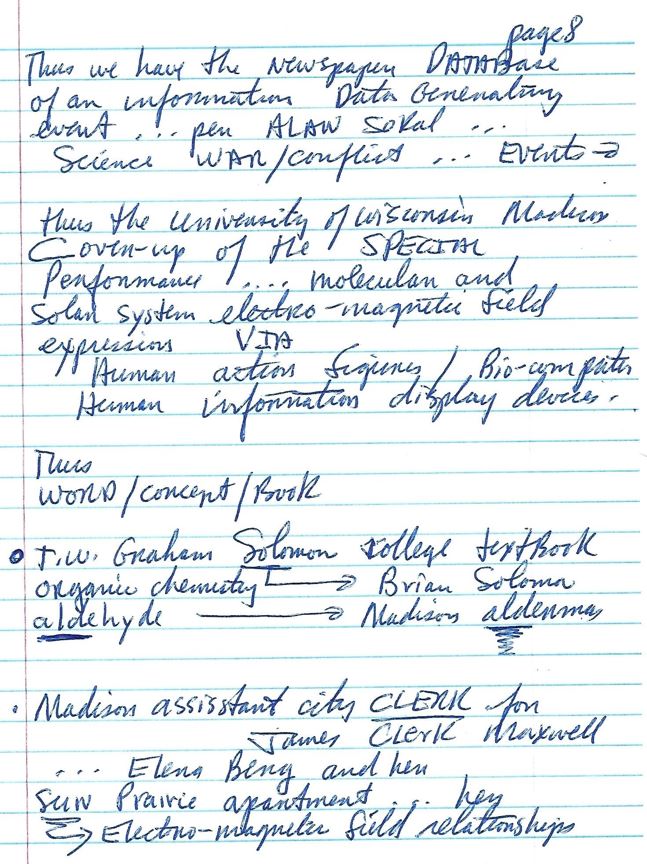 page 8
Thus we have the Newspaper DATABase
of an information Data Generating
event ... per ALAN SoKal ...
Science WAR/conflict ... Events →
thus the University of Wisconsin Madison
Cover-up of the SPECIAL
Performance .... molecular and
Solar system electro-magnetic field
expression VIA
Human action figures / Bio-computer
Human information display devices.
Thus
WORD/concept/Book
• T.W. Graham Solomon college textBook
organic chemistry → Brian Solomon
aldehyde → Madison alderman
. Madison assisstant city CLERK for
James Clerk Maxwell
... Elena Berg and her
SUN Prairie apartment ... her
→ Electro-magnetic field relationships